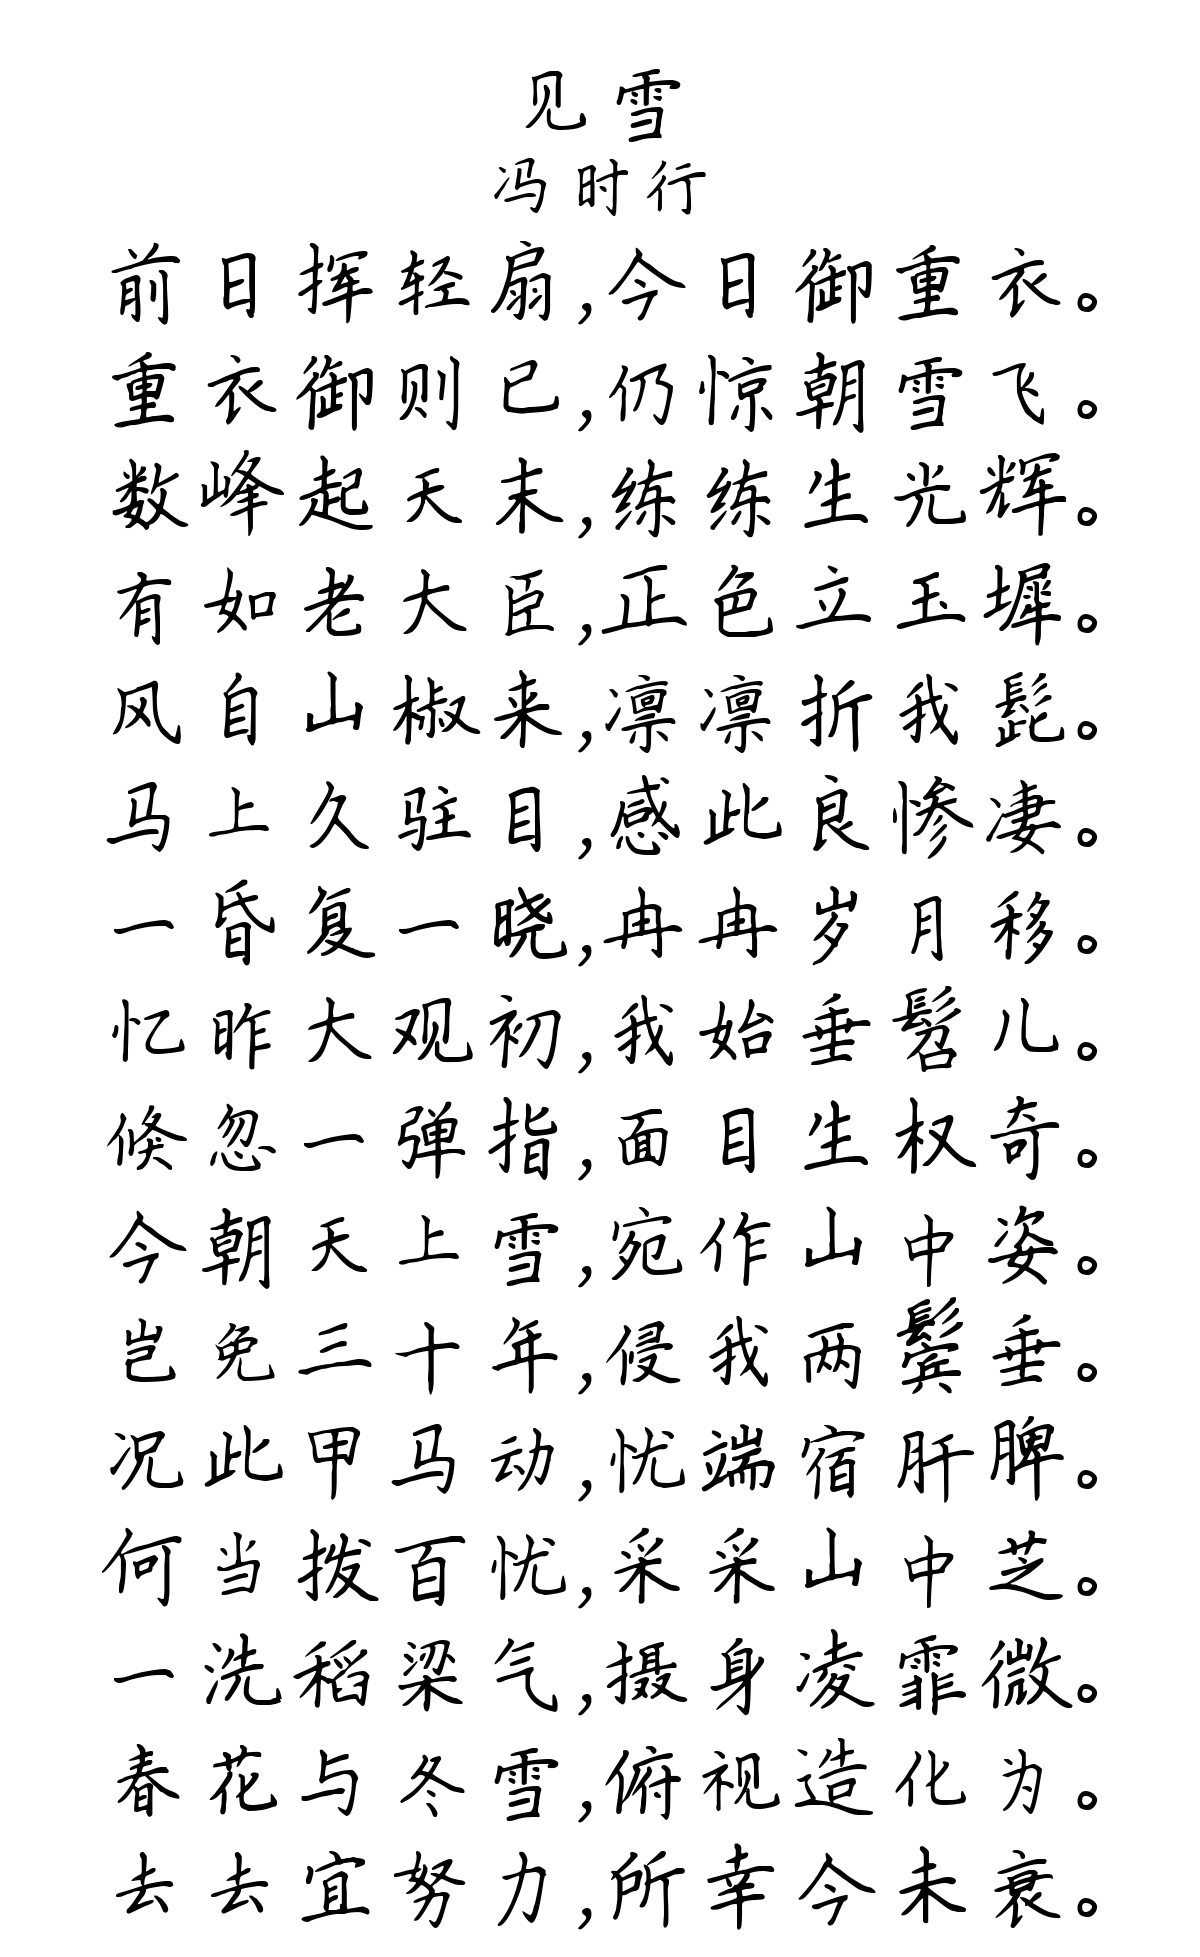 见雪
冯时行
前日挥轻扇,今日御重衣。
重衣御则已,仍惊朝雪飞。
数峰起天末,练练生光辉。
有如老大臣,正色立玉墀。
风自山椒来,凛凛折我髭。
马上久驻目,感此良惨凄。
一昏复一晓,冉冉岁月移。
忆昨大观初,我始垂髫儿。
倏忽一弹指,面目生权奇。
今朝天上雪,宛作山中姿。
岂免三十年,侵我两鬓垂。
况此甲马动,忧端宿肝脾。
何当拨百忧,采采山中芝。
一洗稻梁气,摄身凌霏微。
春花与冬雪,俯视造化为。
去去宜努力,所幸今未衰。